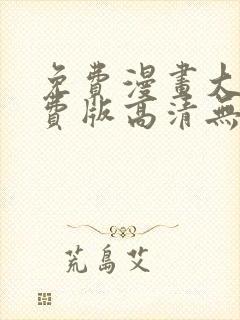 免費漫畫大
費版高清無
荒島艾